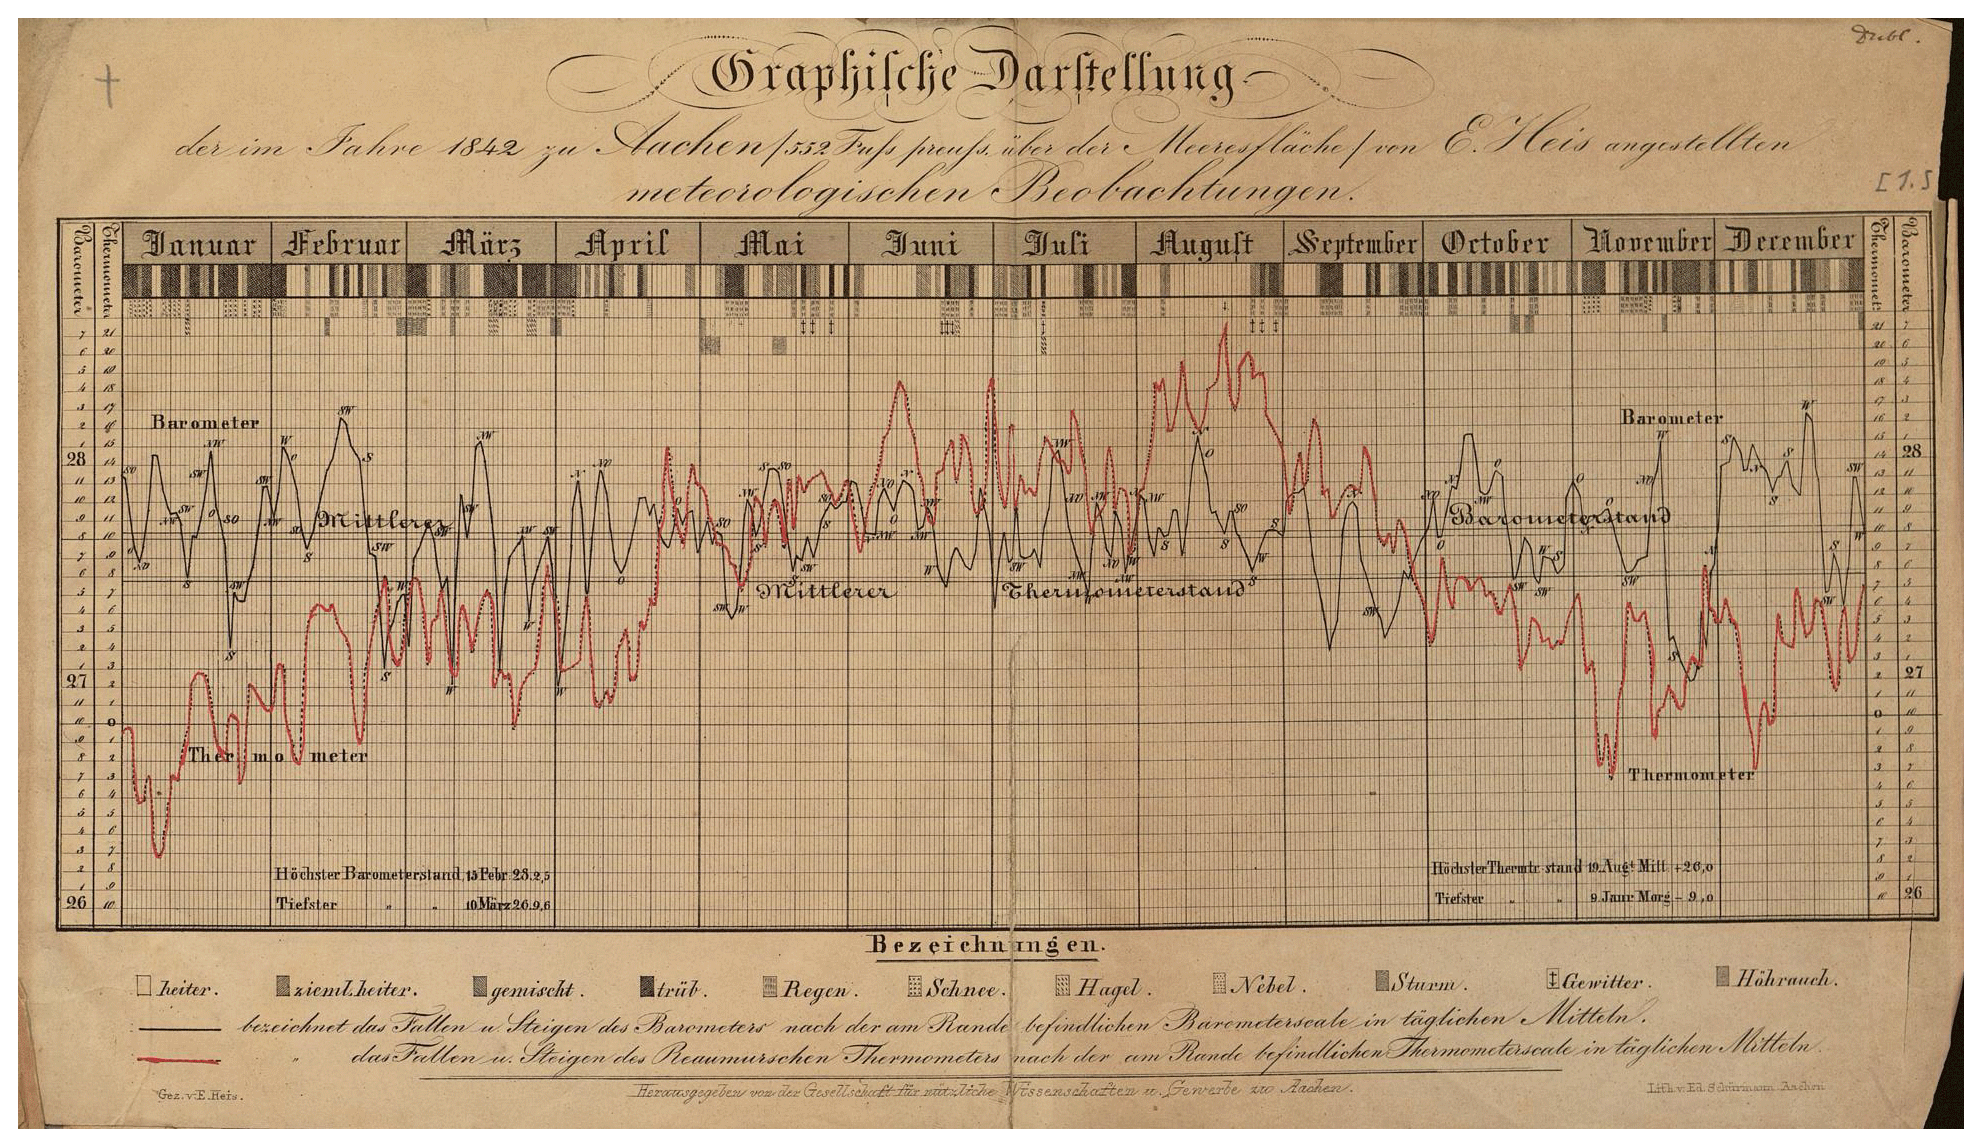 Dubl.
Graphische Darstellung
der im Jahre 1842 zu Aachen /552 Fuss preuss. über der Meeresfläche/ von E. Heis angestellten
meteorologischen Beobachtungen.
[1.]
Barometer Thermometer Januar Februar März April Mai Juni Juli August September October November December Thermometer Barometer
Barometer
Barometer
28
28
Mittlerer Barometerstand
Mittlerer Thermometerstand
27
27
Thermometer
Thermometer
Höchster Barometerstand, 15 Febr. 28.2,5
Tiefster " " 10 März 26.9,6
Höchster Thermtr. stand 19. Augt Mitt. +26,0
Tiefster " " 9. Janr Morg – 9,0
26
26
Bezeichnungen.
heiter. zieml. heiter. gemischt. trüb. Regen. Schnee. Hagel. Nebel. Sturm. Gewitter. Höhrauch.
bezeichnet das Fallen u. Steigen des Barometers nach der am Rande befindlichen Barometerscale in täglichen Mitteln.
" das Fallen u. Steigen des Reaumurschen Thermometers nach der am Rande befindlichen Thermometerscale in täglichen Mitteln.
Gez. v. E. Heis.
Herausgegeben von der Gesellschaft für nützliche Wissenschaften u. Gewerbe zu Aachen.
Lith. v. Ed. Schürmann Aachen